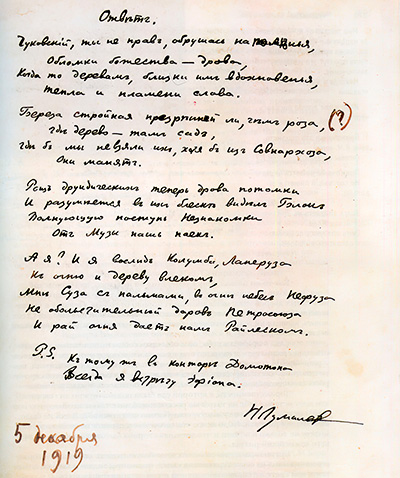 Отвѣтъ.
Чуковскій, ты не правъ, обрушась на поленья,
Обломки божества — дрова,
Когда то деревамъ, близки имъ вдохновенья,
Тепла и пламени слова.
Береза стройная презрѣннѣй ли, чѣмъ роза, (?)
Гдѣ дерево — тамъ садъ,
Гдѣ бъ мы не взяли ихъ, хотя бъ изъ Совнархоза,
Они манятъ.
Рощъ друидическихъ теперь дрова потомки
И разумѣется въ ихъ блескѣ видѣлъ Блокъ
Волнующую поступь Незнакомки
Отъ Музы нашъ паекъ.
А я? И я вослѣдъ Колумба, Лаперуза
Къ огню и дереву влекомъ,
Мнѣ Суза съ пальмами, въ огнѣ небесъ Нефуза
Не обольстительнѣй даровъ Петросоюза
И рай огня даетъ намъ Райлескомъ.
P.S. Къ тому жъ въ конторѣ Домотопа
Всегда я встрѣчу эфіопа.
Н Гумилев
5 декабря
1919